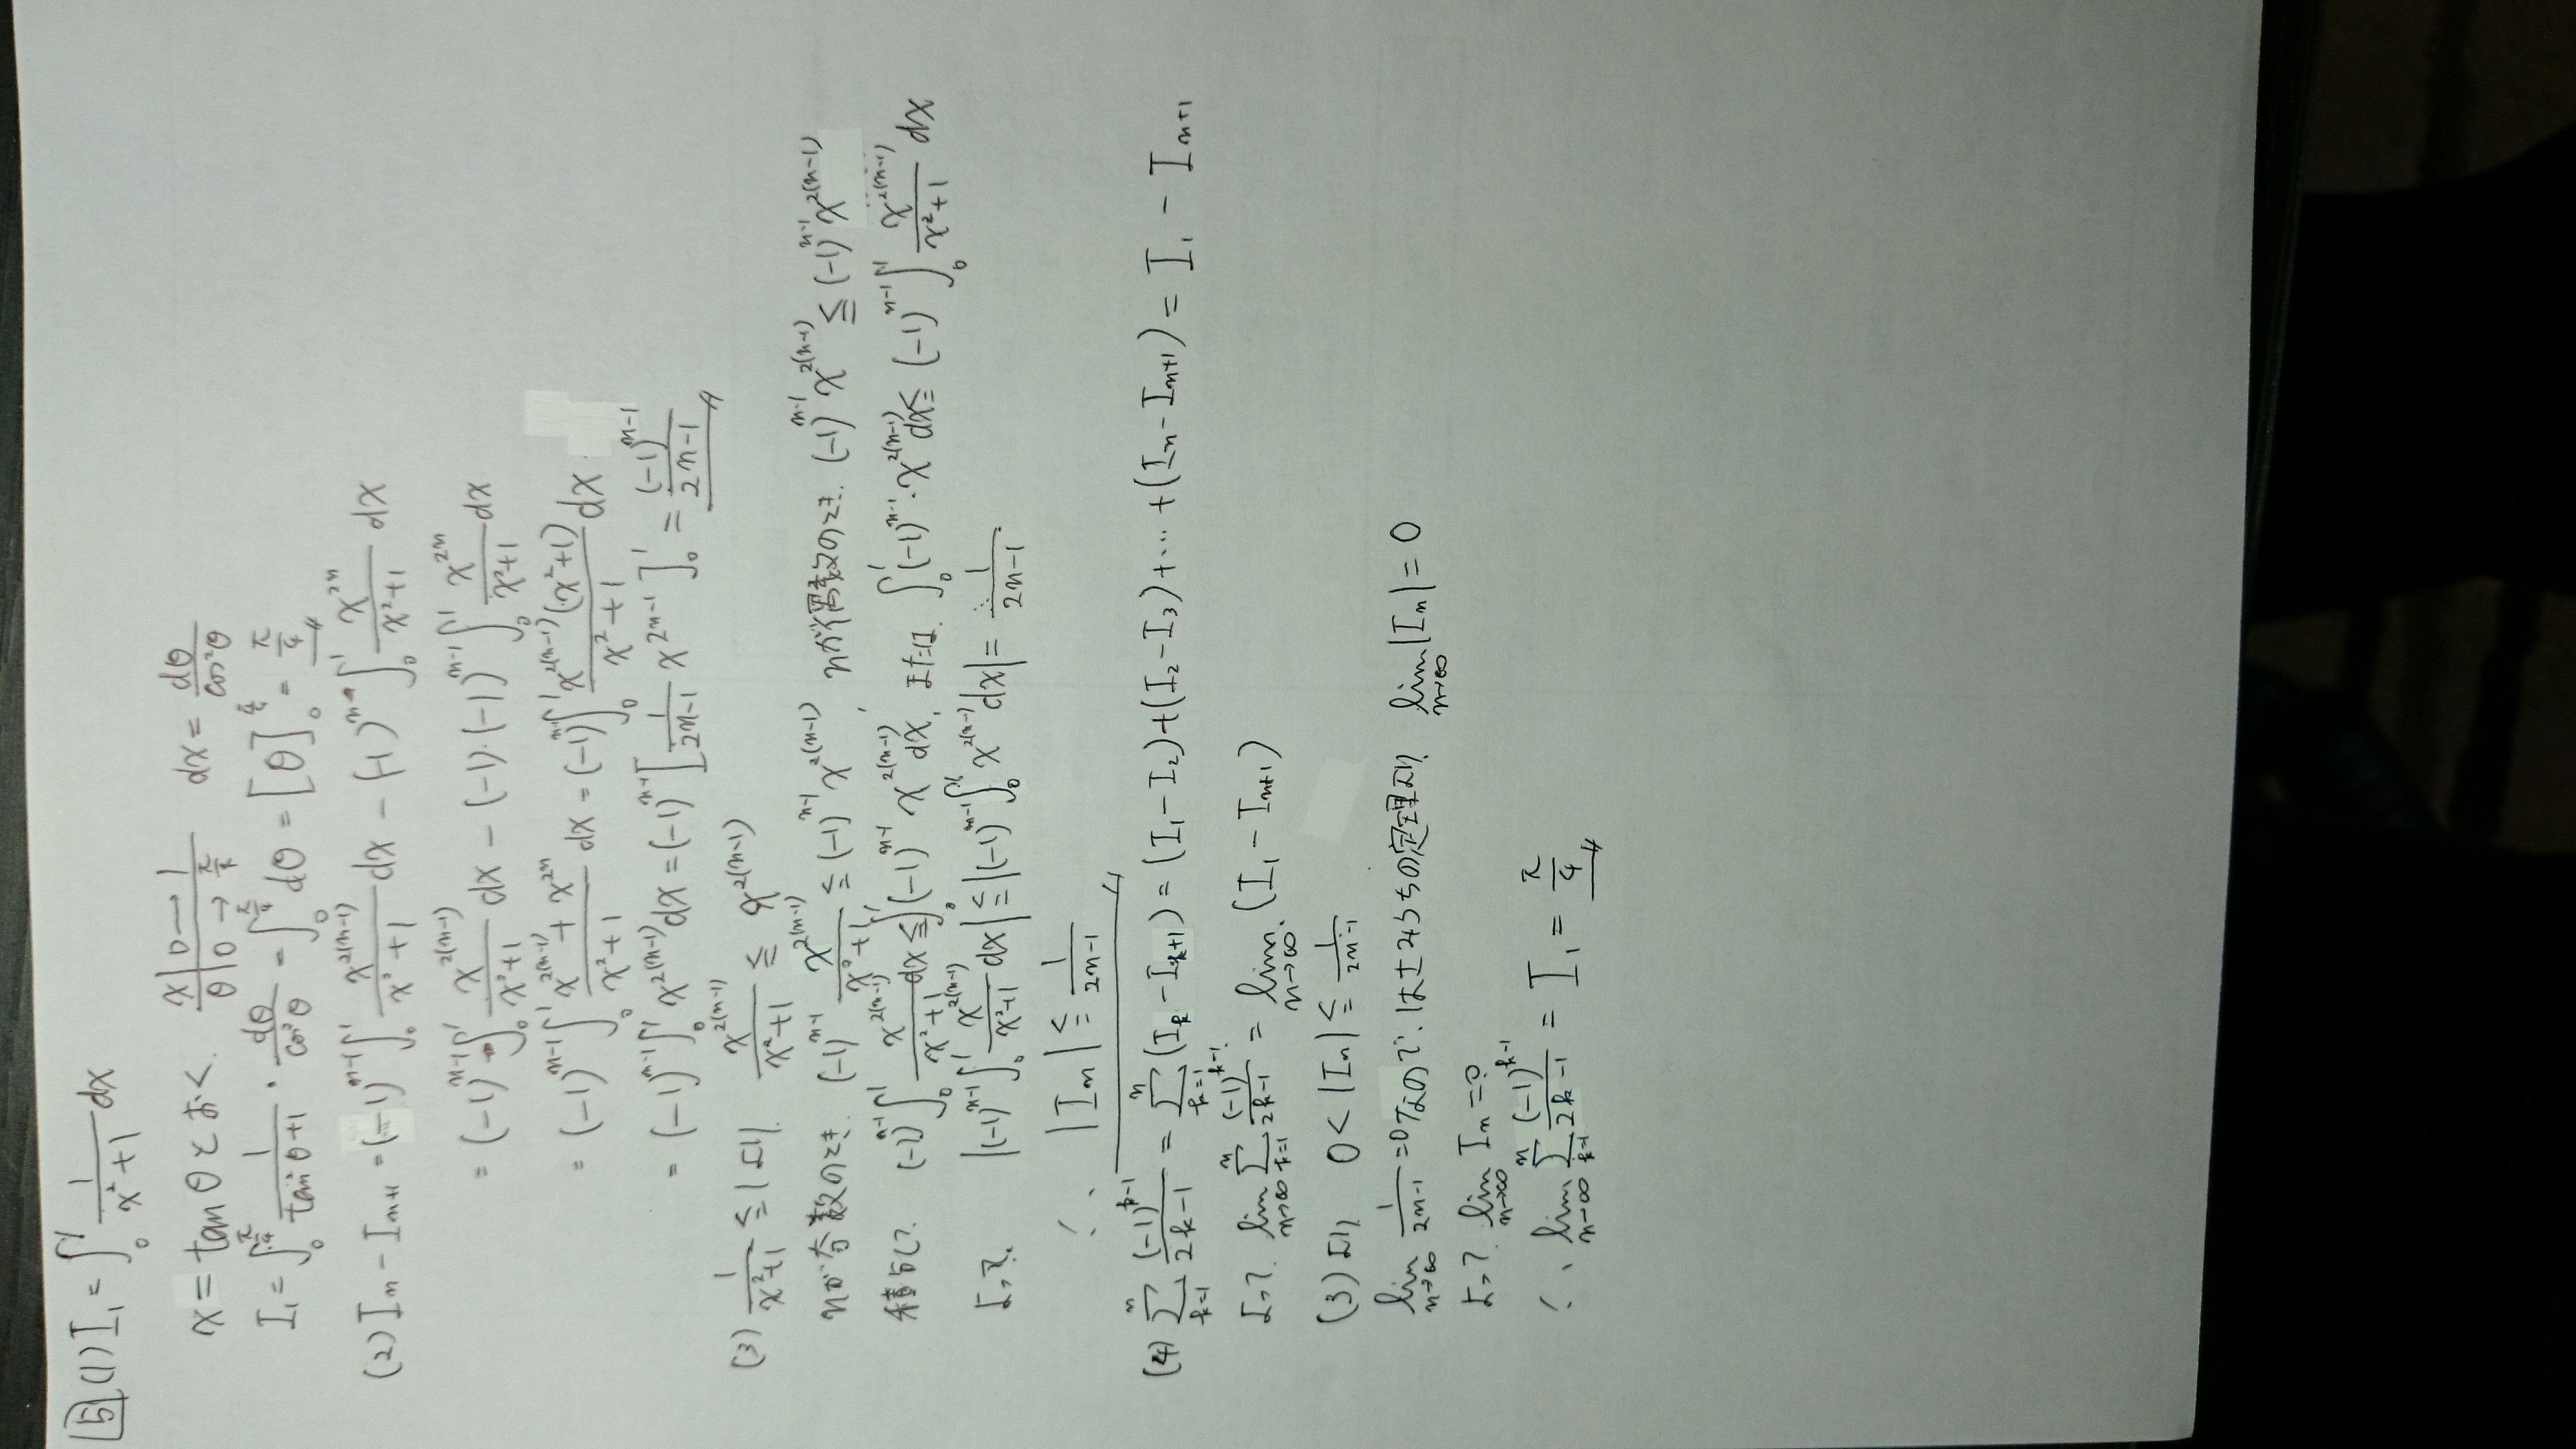 5 (1) I₁ = ∫₀¹ 1/(x²+1) dx
x = tanθ とおく. x | 0 → 1 dx = dθ/cos²θ
θ | 0 → π/4
I₁ = ∫₀^(π/4) 1/(tan²θ+1) · dθ/cos²θ = ∫₀^(π/4) dθ = [θ]₀^(π/4) = π/4
(2) Iₙ - Iₙ₊₁ = (-1)^(n-1) ∫₀¹ x^(2(n-1))/(x²+1) dx - (-1)^n ∫₀¹ x^(2n)/(x²+1) dx
= (-1)^(n-1) ∫₀¹ x^(2(n-1))/(x²+1) dx - (-1)·(-1)^(n-1) ∫₀¹ x^(2n)/(x²+1) dx
= (-1)^(n-1) ∫₀¹ (x^(2(n-1)) + x^(2n))/(x²+1) dx = (-1)^(n-1) ∫₀¹ x^(2(n-1))(x²+1)/(x²+1) dx
= (-1)^(n-1) ∫₀¹ x^(2(n-1)) dx = (-1)^(n-1) [1/(2n-1) x^(2n-1)]₀¹ = (-1)^(n-1)/(2n-1)
(3) 1/(x²+1) ≦ 1 より. x^(2(n-1))/(x²+1) ≦ x^(2(n-1))
nが奇数のとき. (-1)^(n-1) x^(2(n-1))/(x²+1) ≦ (-1)^(n-1) x^(2(n-1)), nが偶数のとき. (-1)^(n-1) x^(2(n-1)) ≦ (-1)^(n-1) x^(2(n-1))
積分して. (-1)^(n-1) ∫₀¹ x^(2(n-1))/(x²+1) dx ≦ ∫₀¹ (-1)^(n-1) x^(2(n-1)) dx, または ∫₀¹ (-1)^(n-1)·x^(2(n-1)) dx ≦ (-1)^(n-1) ∫₀¹ x^(2(n-1))/(x²+1) dx
よって. |(-1)^(n-1) ∫₀¹ x^(2(n-1))/(x²+1) dx| ≦ |(-1)^(n-1) ∫₀¹ x^(2(n-1)) dx| = 1/(2n-1)
∴ |Iₙ| ≦ 1/(2n-1)
(4) Σₖ₌₁ⁿ (-1)^(k-1)/(2k-1) = Σₖ₌₁ⁿ (Iₖ - Iₖ₊₁) = (I₁ - I₂) + (I₂ - I₃) + … + (Iₙ - Iₙ₊₁) = I₁ - Iₙ₊₁
よって. lim_(n→∞) Σₖ₌₁ⁿ (-1)^(k-1)/(2k-1) = lim_(n→∞) (I₁ - Iₙ₊₁)
(3) より 0 < |Iₙ| ≦ 1/(2n-1)
lim_(n→∞) 1/(2n-1) = 0 なので. はさみうちの定理より lim_(n→∞) |Iₙ| = 0
よって. lim_(n→∞) Iₙ = 0
∴ lim_(n→∞) Σₖ₌₁ⁿ (-1)^(k-1)/(2k-1) = I₁ = π/4